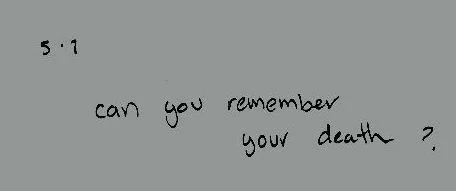 5.1
can you remember
your death ?